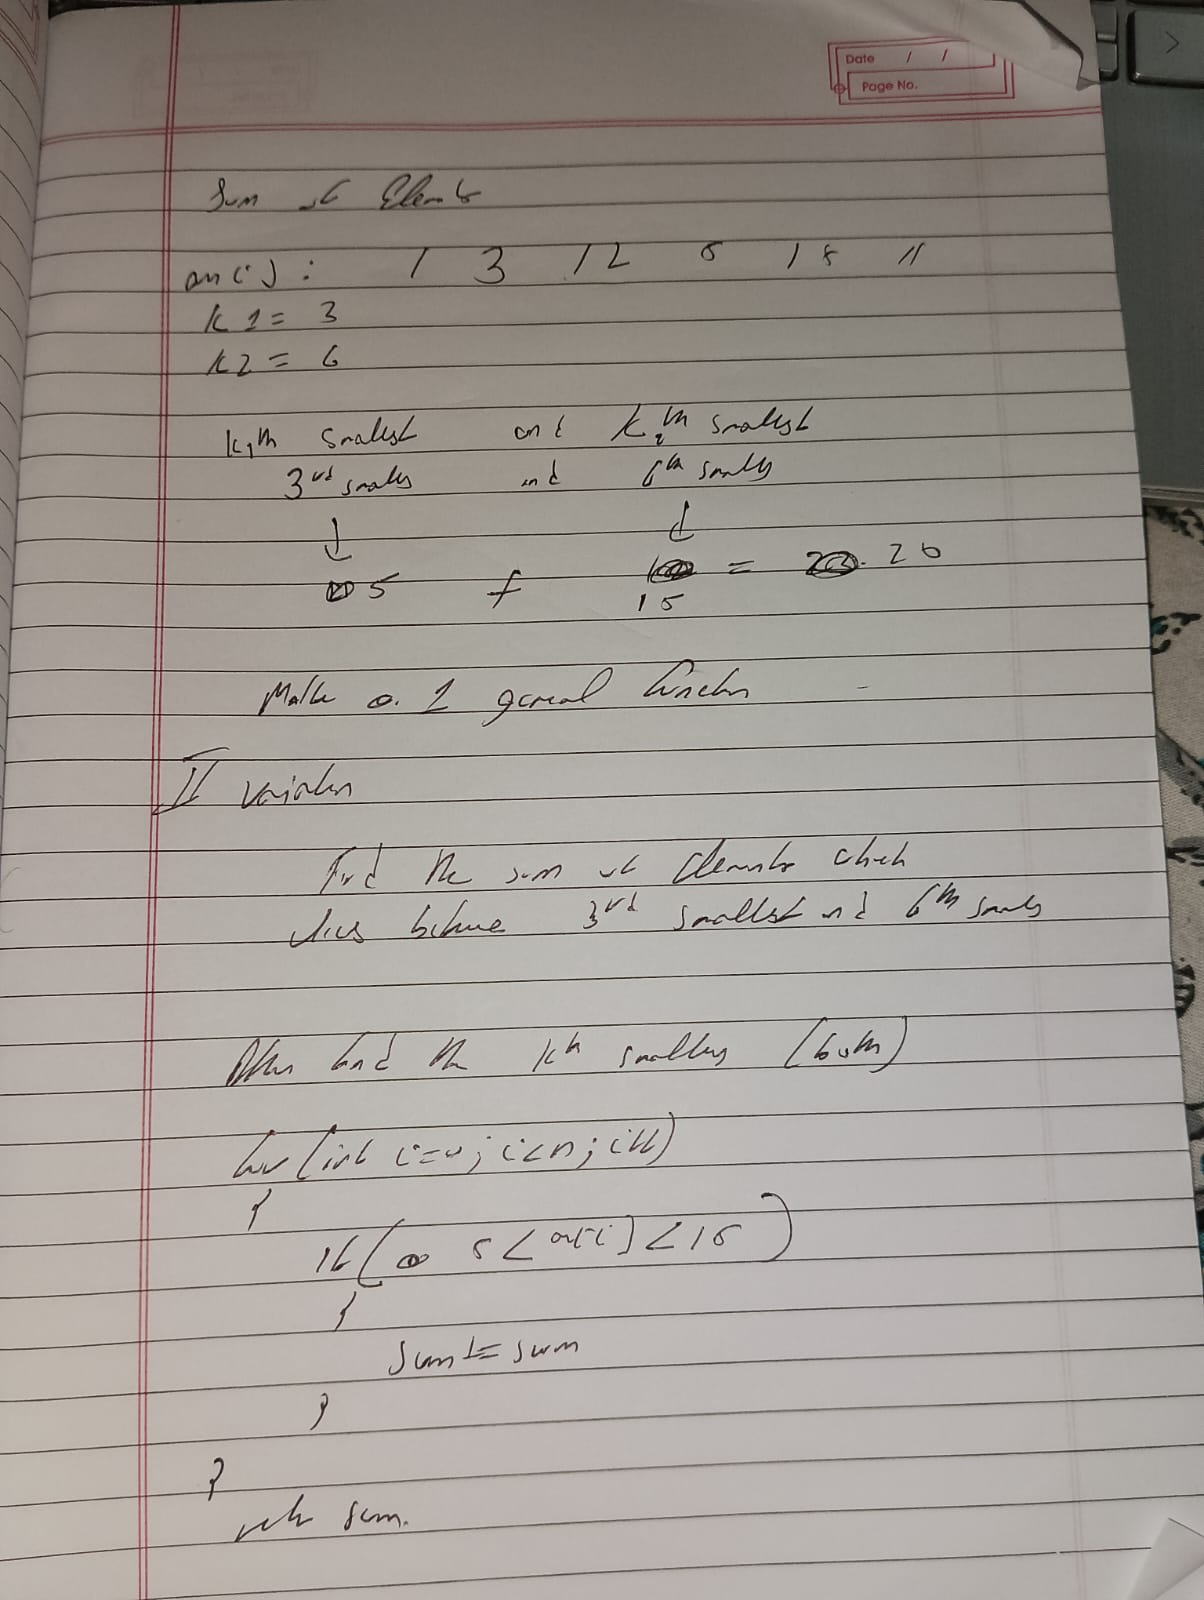 Date / /
Page No.
Sum of Elements
arr[] : 1 3 12 5 15 11
K1 = 3
K2 = 6
K1th smallest and K2th smallest
3rd smallest and 6th smallest
↓ ↓
5 + = 20
15
Make a 1 general function
II variation
Find the sum of elements which
lies between 3rd smallest and 6th smallest
After find the kth smallest (both)
for (int i=0; i<n; i++)
{
if ( 5 < arr[i] < 15 )
{
sum += sum
}
}
return sum.